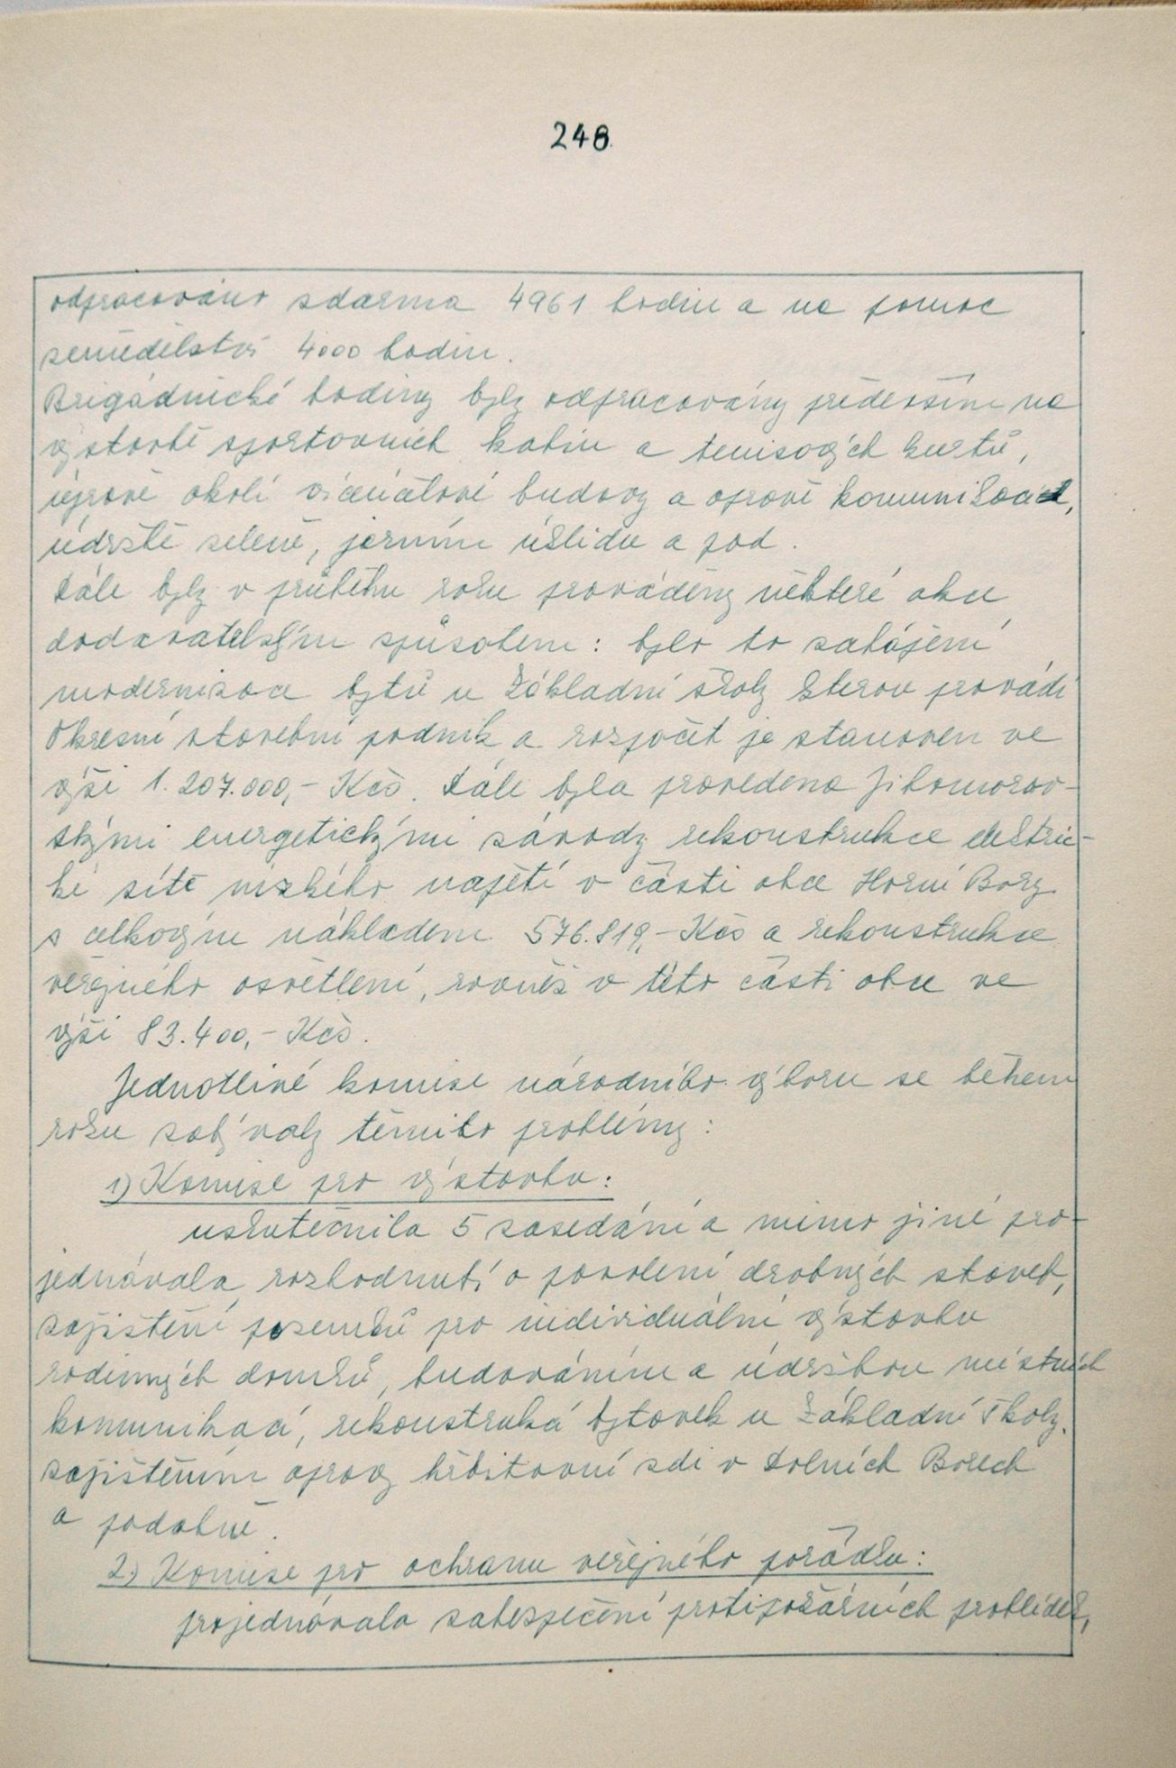 248.
odpracováno zdarma 4961 hodin a na pomoc
zemědělství 4000 hodin.
Brigádnické hodiny byly odpracovány především na
výstavbě sportovních kabin a tenisových kurtů,
úpravě okolí víceúčelové budovy a opravě komunikací,
údržbě zeleně, jarním úklidu a pod.
Dále byly v průběhu roku prováděny některé akce
dodavatelským způsobem: bylo to zahájení
modernizace bytů u Základní školy kterou provádí
Okresní stavební podnik a rozpočet je stanoven ve
výši 1.207.000,- Kčs. Dále byla provedena Jihomorav-
skými energetickými závody rekonstrukce elektric-
ké sítě nízkého napětí v části obce Horní Bory
s celkovým nákladem 576.819,- Kčs a rekonstrukce
veřejného osvětlení, rovněž v této části obce ve
výši 83.400,- Kčs.
Jednotlivé komise národního výboru se během
roku zabývaly těmito problémy:
1) Komise pro výstavbu:
uskutečnila 5 zasedání a mimo jiné pro-
jednávala rozhodnutí o povolení drobných staveb,
zajištění pozemků pro individuální výstavbu
rodinných domků, budováním a údržbou místních
komunikací, rekonstrukcí bytovek u Základní školy,
zajištěním opravy hřbitovní zdi v Dolních Borech
a podobně.
2) Komise pro ochranu veřejného pořádku:
projednávala zabezpečení protipožárních prohlídek,